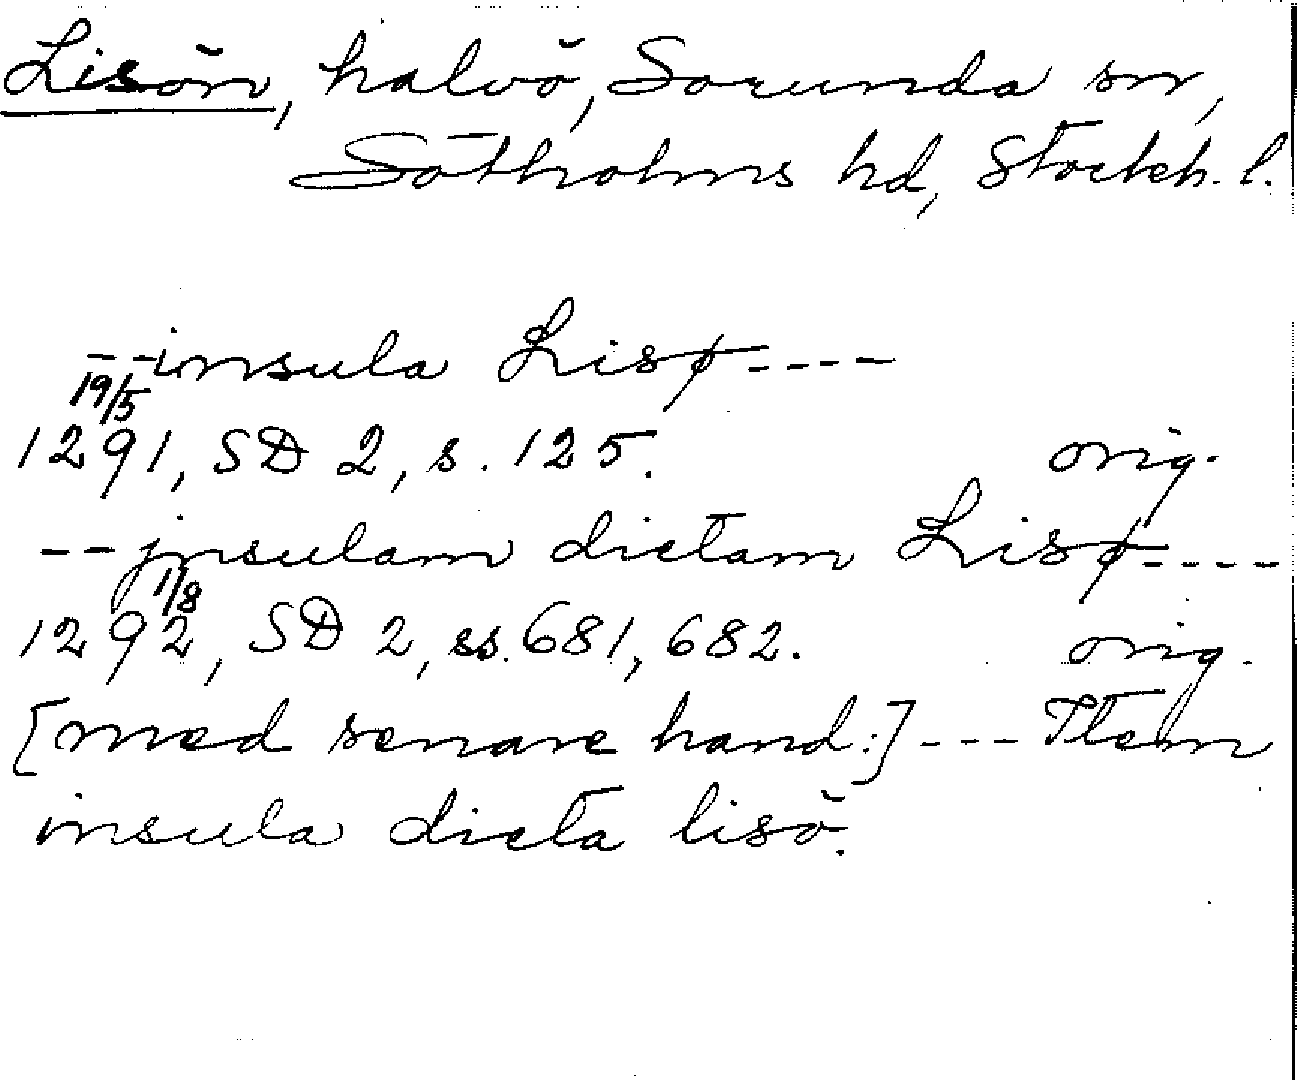 Lisön, halvö, Sorunda sn,
Sotholms hd, Stockh. l.
--insula Lisø----
19/5
1291, SD 2, s. 125. orig.
--jnsulam dictam Lisø----
1/8
1292, SD 2, ss. 681, 682. orig.
[med senare hand:] --- Item
insula dicta lisö.